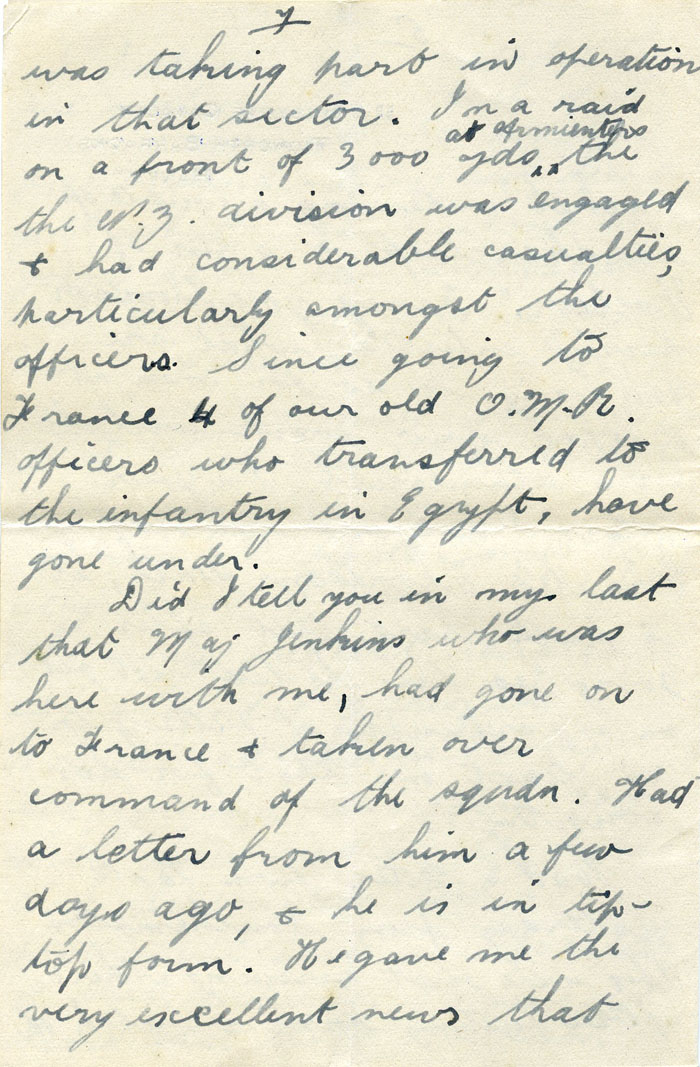 7
was taking part in operation
in that sector. In a raid
at Armienters
on a front of 3000 yds, the
the N.Z. division was engaged
& had considerable casualties,
particularly amongst the
officers. Since going to
France 4 of our old O.M.R.
officers who transferred to
the infantry in Egypt, have
gone under.
Did I tell you in my last
that Maj Jenkins who was
here with me, had gone on
to France & taken over
command of the squdn. Had
a letter from him a few
days ago, & he is in tip-
top form. He gave me the
very excellent news that